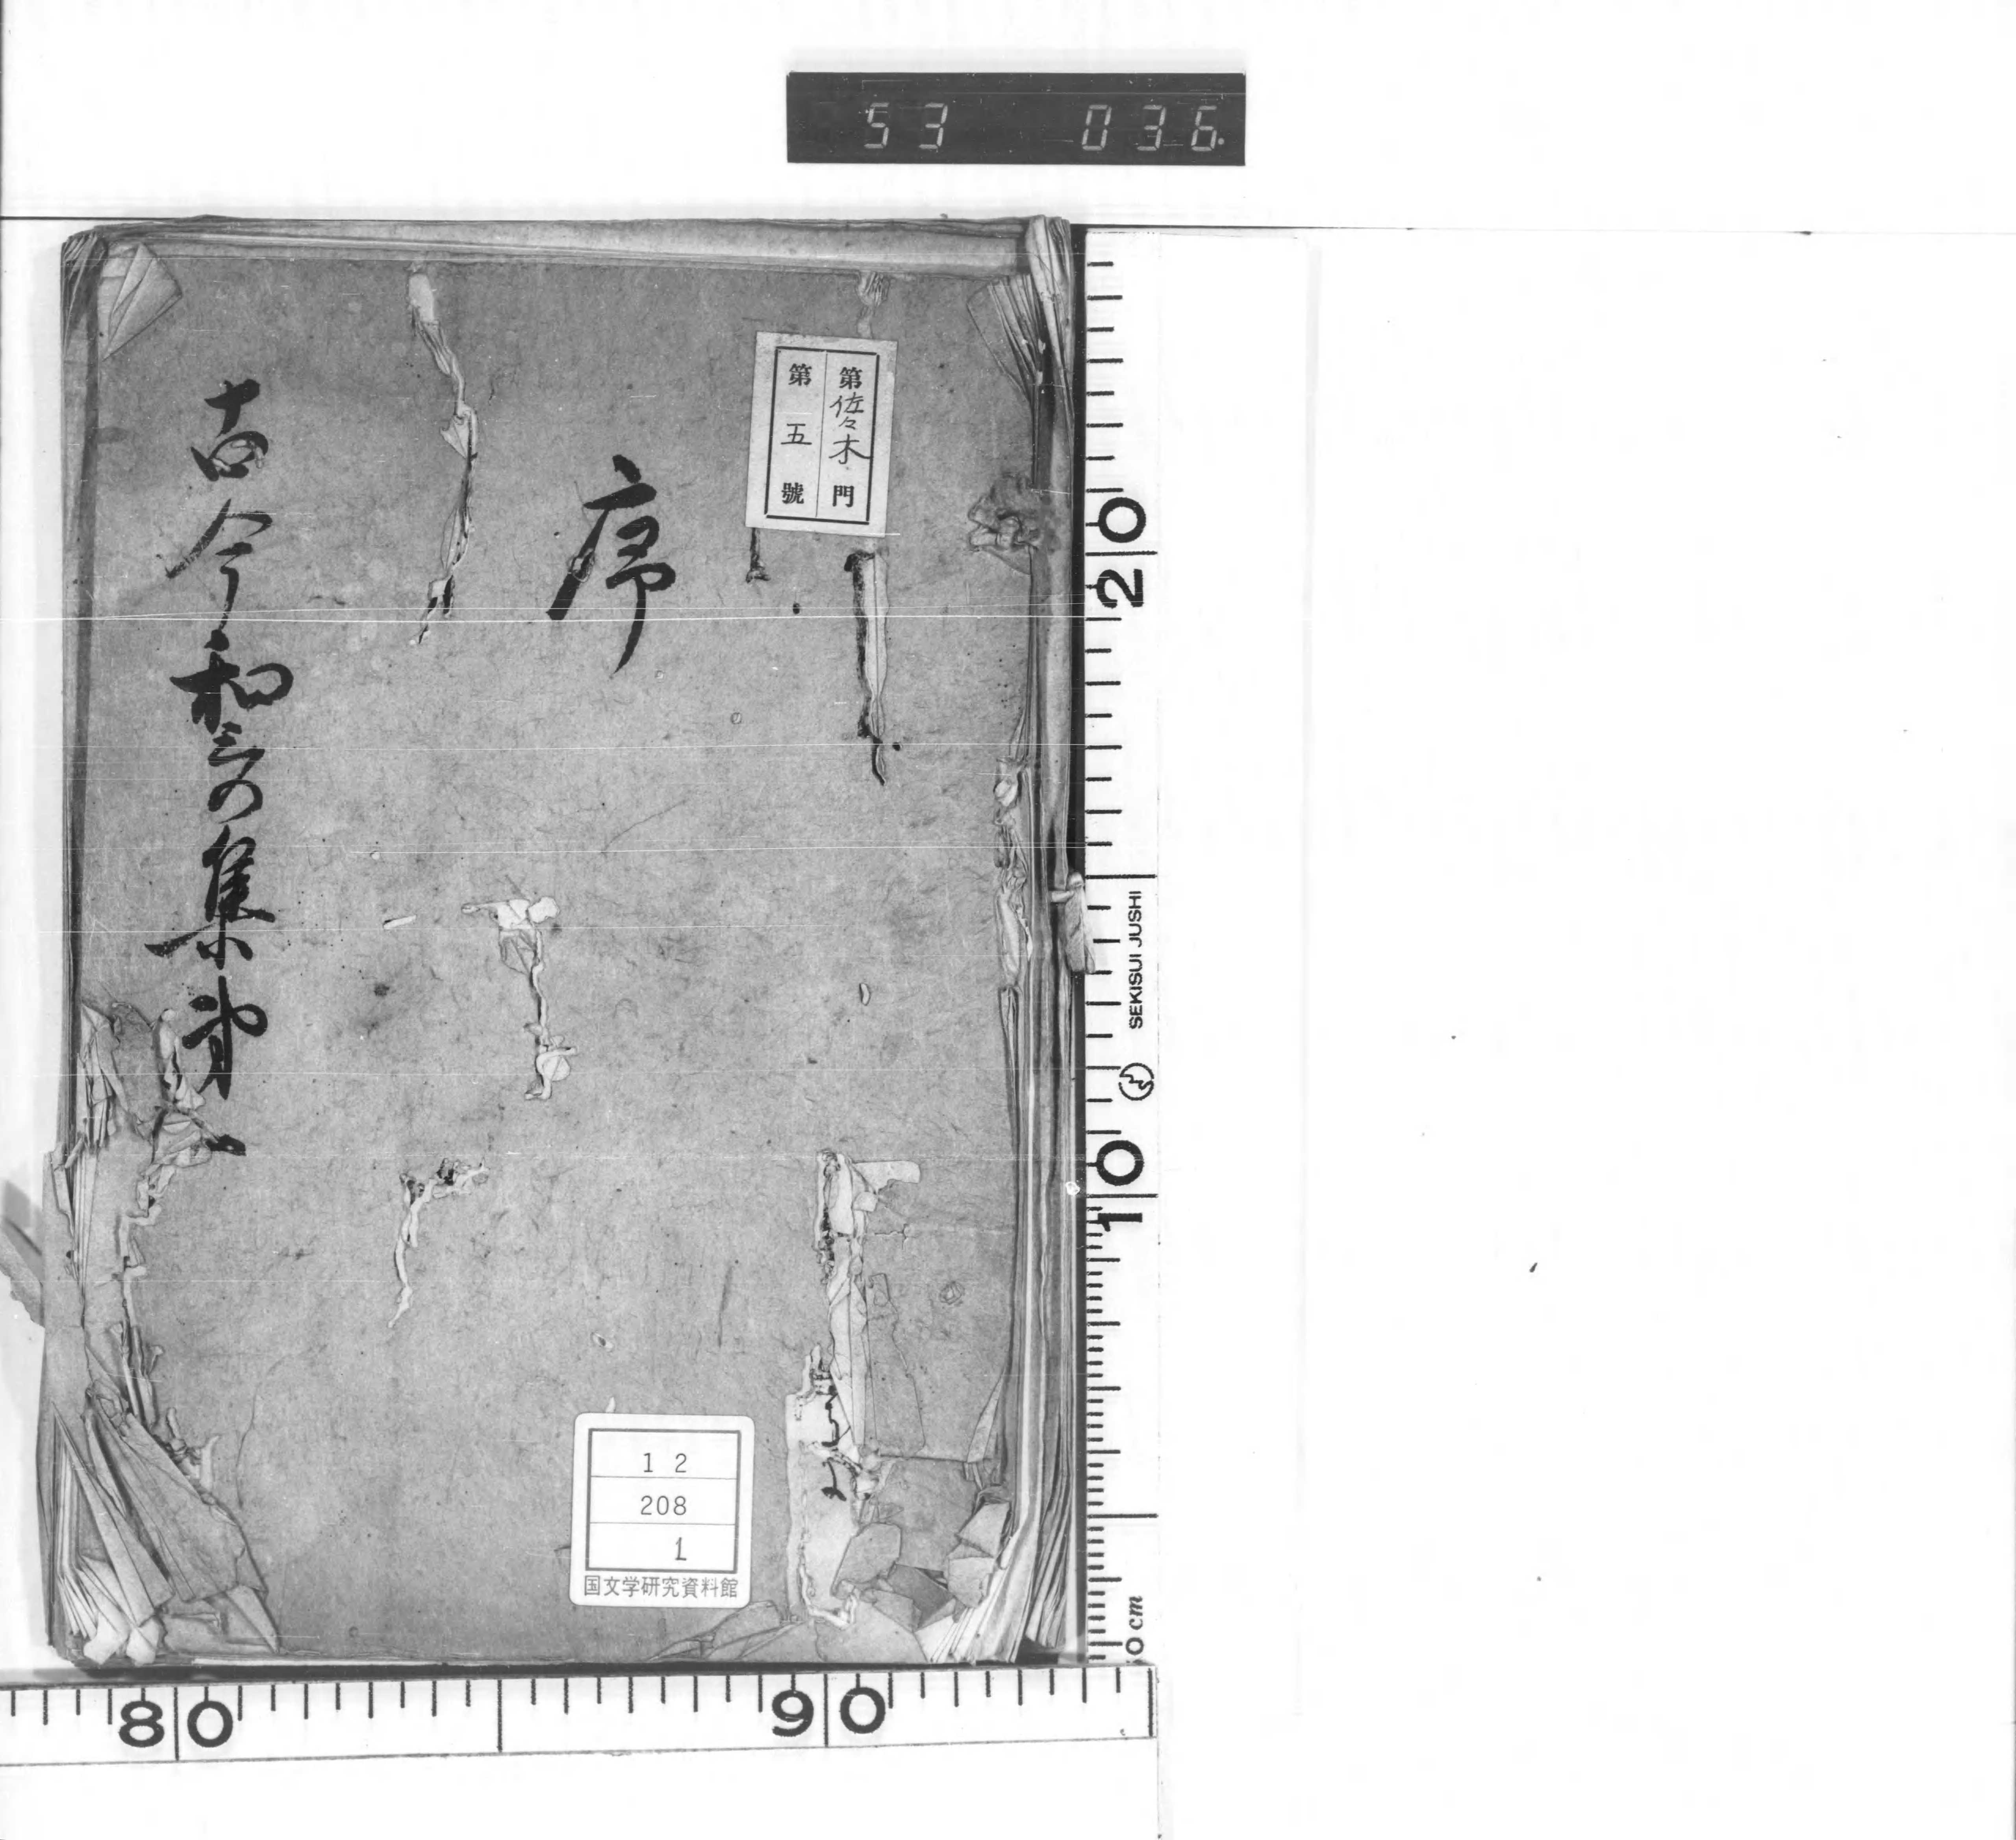 53 036
第佐々木門
第五號
序
古今和哥集第
12
208
1
国文学研究資料館
20
SEKISUI JUSHI
10
0cm
80
90